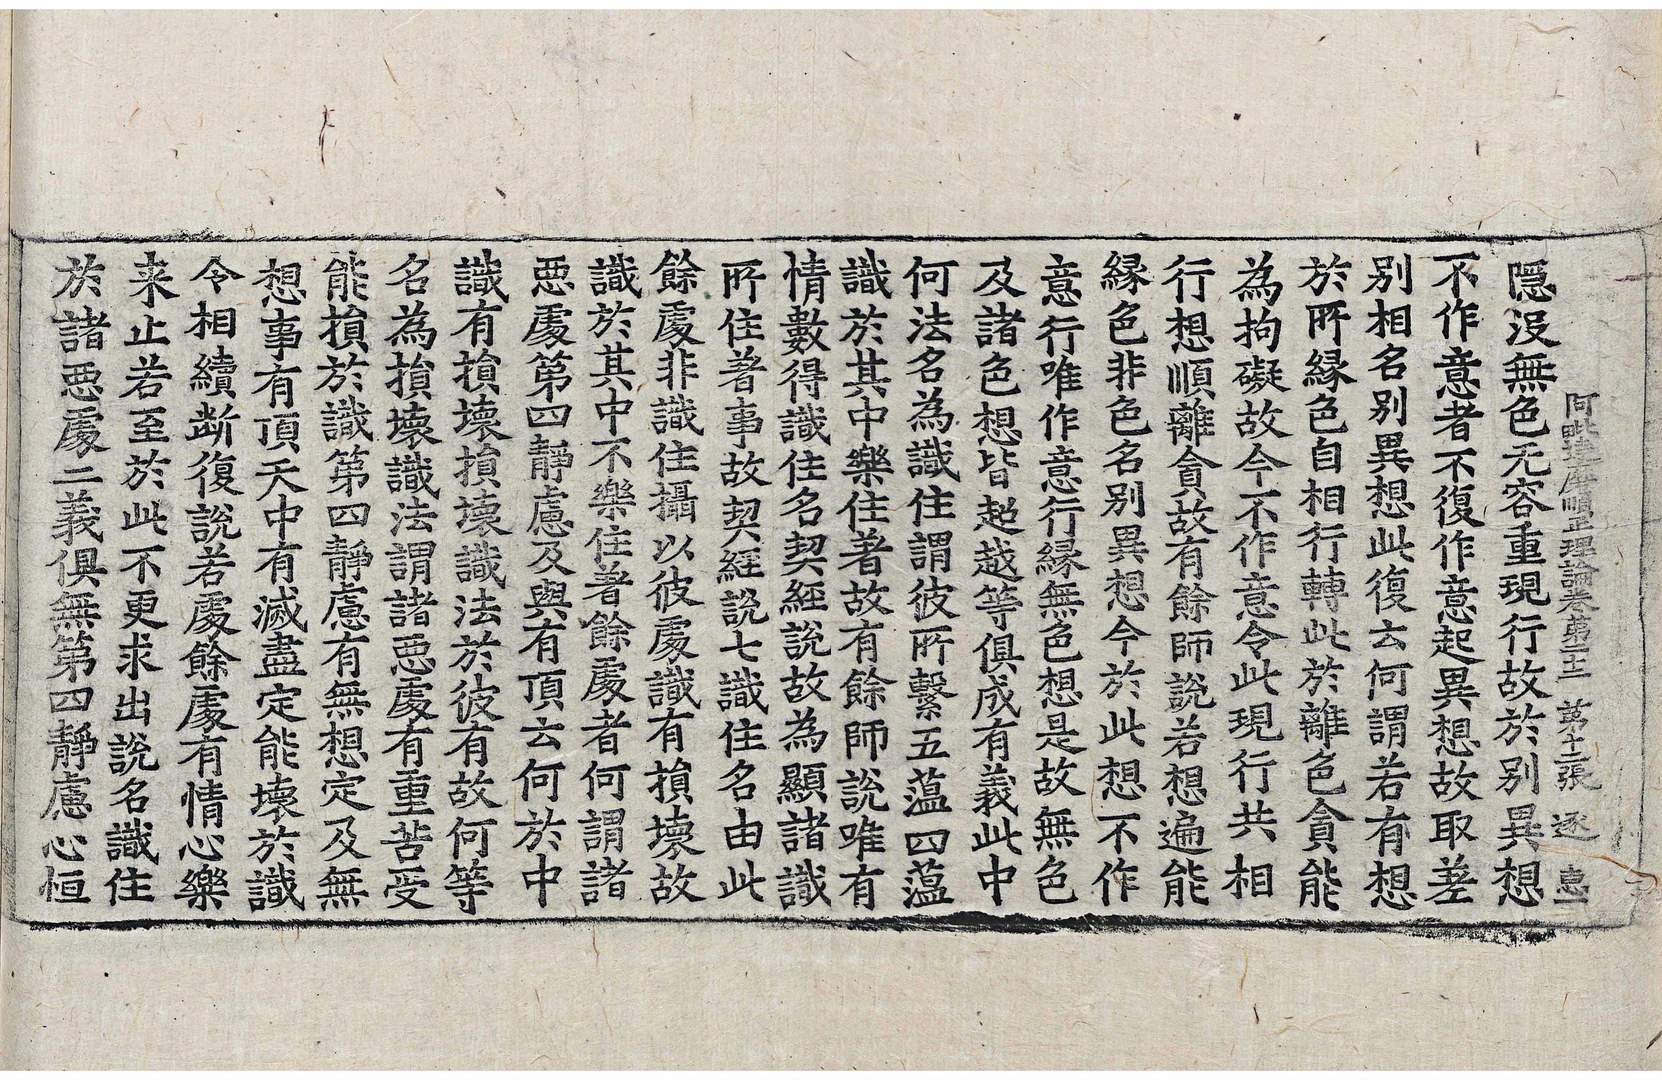 阿毗達磨順正理論卷第二十二 第十二張 逐
隱沒無色无容重現行故於別異想
不作意者不復作意起異想故取差
別相名別異想此復云何謂若有想
於所緣色自相行轉此於離色貪能
為拘礙故今不作意令此現行共相
行想順離貪故有餘師說若想遍能
緣色非色名別異想今於此想不作
意行唯作意行緣無色想是故無色
及諸色想皆超越等俱成有義此中
何法名為識住謂彼所繫五蘊四蘊
識於其中樂住著故有餘師說唯有
情數得識住名契經說故為顯諸識
所住著事故契經說七識住名由此
餘處非識住攝以彼處識有損壞故
識於其中不樂住著餘處者何謂諸
惡處第四靜慮及與有頂云何於中
識有損壞損壞識法於彼有故何等
名為損壞識法謂諸惡處有重苦受
能損於識第四靜慮有無想定及無
想事有頂天中有滅盡定能壞於識
令相續断復說若處餘處有情心樂
来止若至於此不更求出說名識住
於諸惡處二義俱無第四靜慮心恒